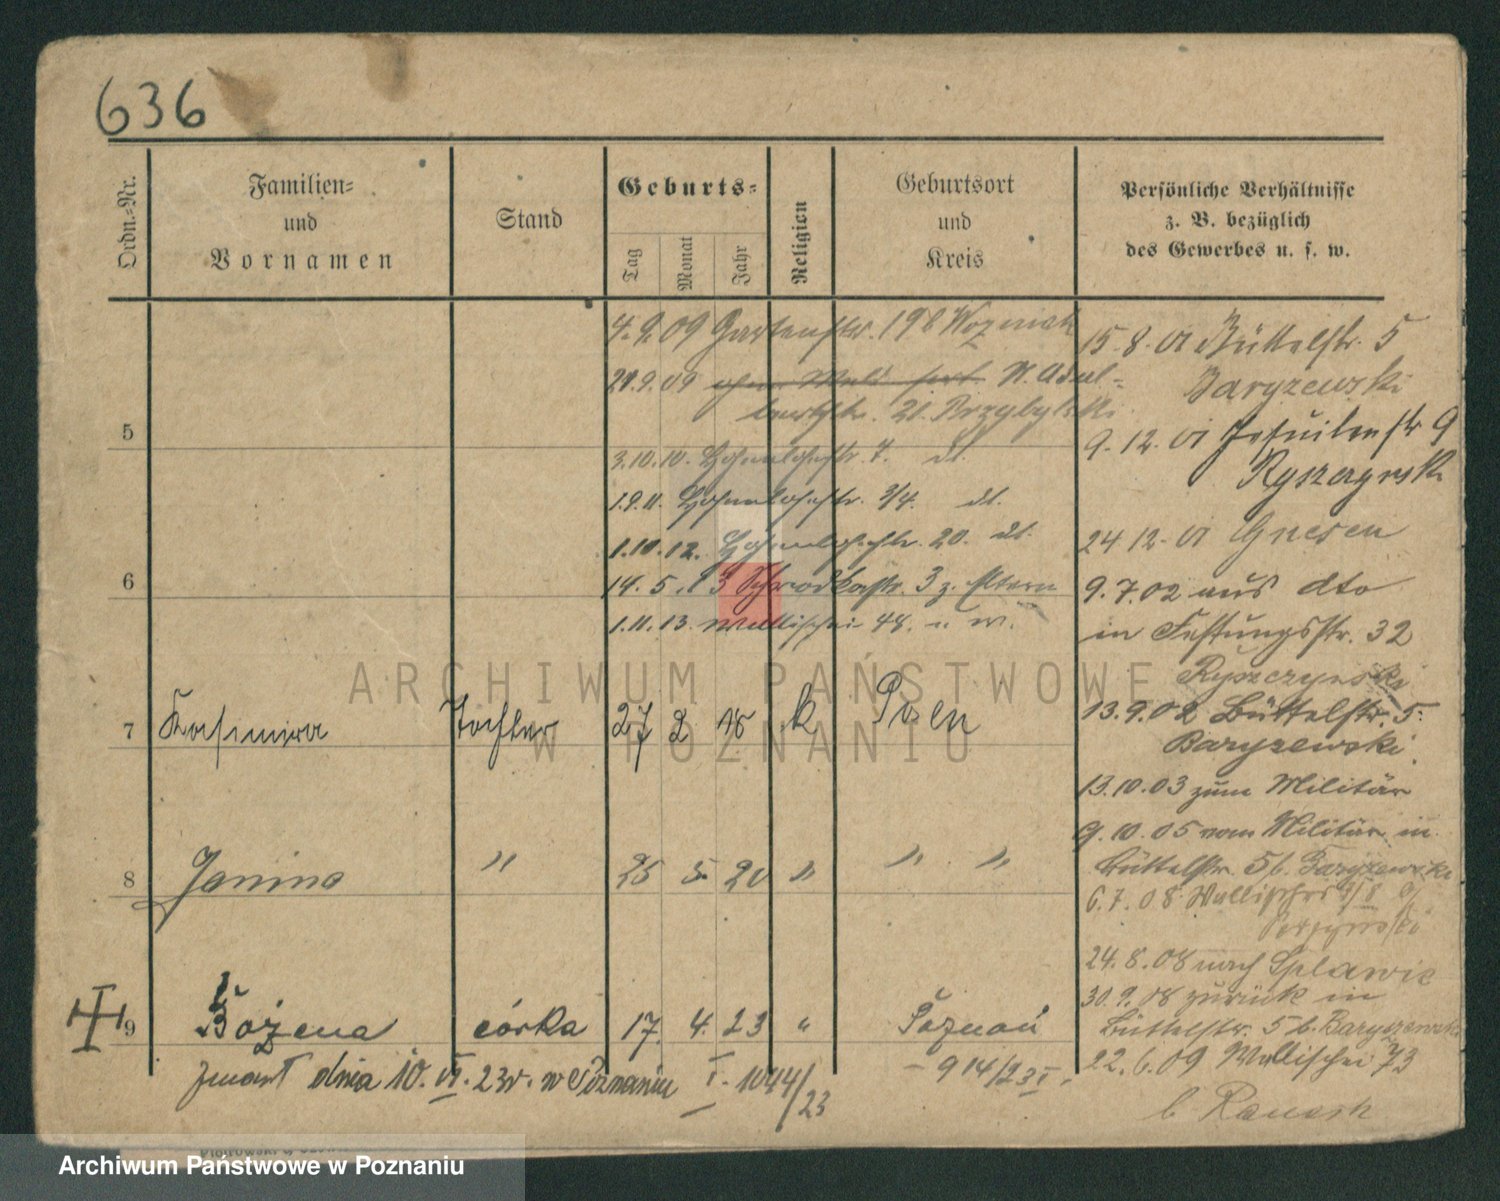 636
Ordn.-Nr.
Familien-
und
Vornamen
Stand
Geburts-
Tag
Monat
Jahr
Religion
Geburtsort
und
Kreis
Persönliche Verhältnisse
z. B. bezüglich
des Gewerbes u. s. w.
4.9.09 Gartenstr. 198 Wozniak
21.9.09 N. Adal-
bertstr. 21. Przybylski
5
3.10.10. Hohenlohestr. 7. dt.
1.9.11. Hohenlohestr. 3/4. dt.
1.10.12. Hohenlohestr. 20. dt.
6
14.5.13 Schrodkastr. 3 z. Eltern
1.11.13. Wallischei 48. u. w.
7 Kasimira Tochter 27 2 18 k Posen
8 Janina " 25 5. 20 " " "
9 Bożena córka 17. 4. 23 " Poznań
zmarł dnia 10. VI. 23r. w Poznaniu I. 1044/23
– 914/23 I.
15.8.01 Büttelstr. 5
Baryzewski
9.12.01 Jesuitenstr 9
Ryszczynski
24 12. 01 Gnesen
9.7.02 aus dto
in Festungsstr. 32
Ryszczynski
13.9.02 Büttelstr. 5.
Baryzewski.
13.10.03 zum Militär
9.10.05 vom Militär in
Büttelstr. 5 b. Baryzewski
6.7.08 Wallischei
24.8.08 nach Splawie
30.9.08 zurück in
Büttelstr. 5 b. Baryszewski
22.6.09 Wallischei 73
b
ARCHIWUM PAŃSTWOWE
W POZNANIU
Archiwum Państwowe w Poznaniu